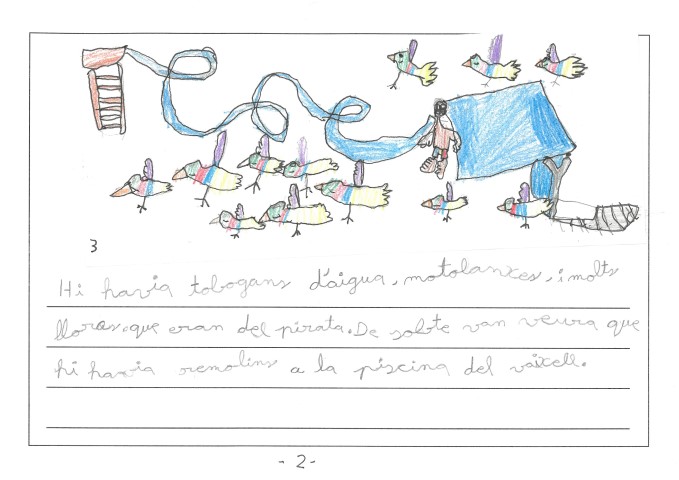 3
Hi havia tobogans d'aigua, motolanxes, i molts
lloros que eran del pirata. De sobte van veura que
hi havia remolins a la piscina del vaixell.
- 2 -